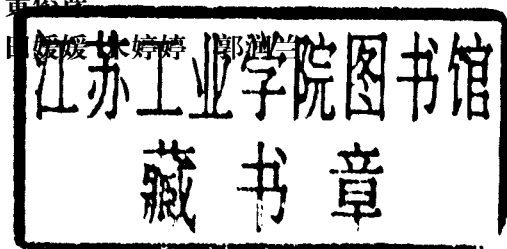 媛媛 婷婷 郭润兰
江苏工业学院图书馆
藏书章